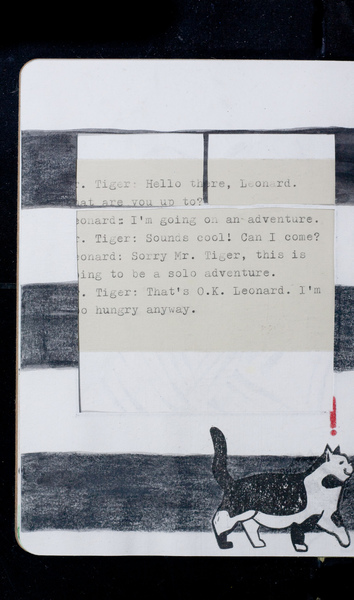 r. Tiger: Hello there, Leonard.
at are you up to?
eonard: I'm going on an adventure.
r. Tiger: Sounds cool! Can I come?
eonard: Sorry Mr. Tiger, this is
ing to be a solo adventure.
. Tiger: That's O.K. Leonard. I'm
o hungry anyway.
!